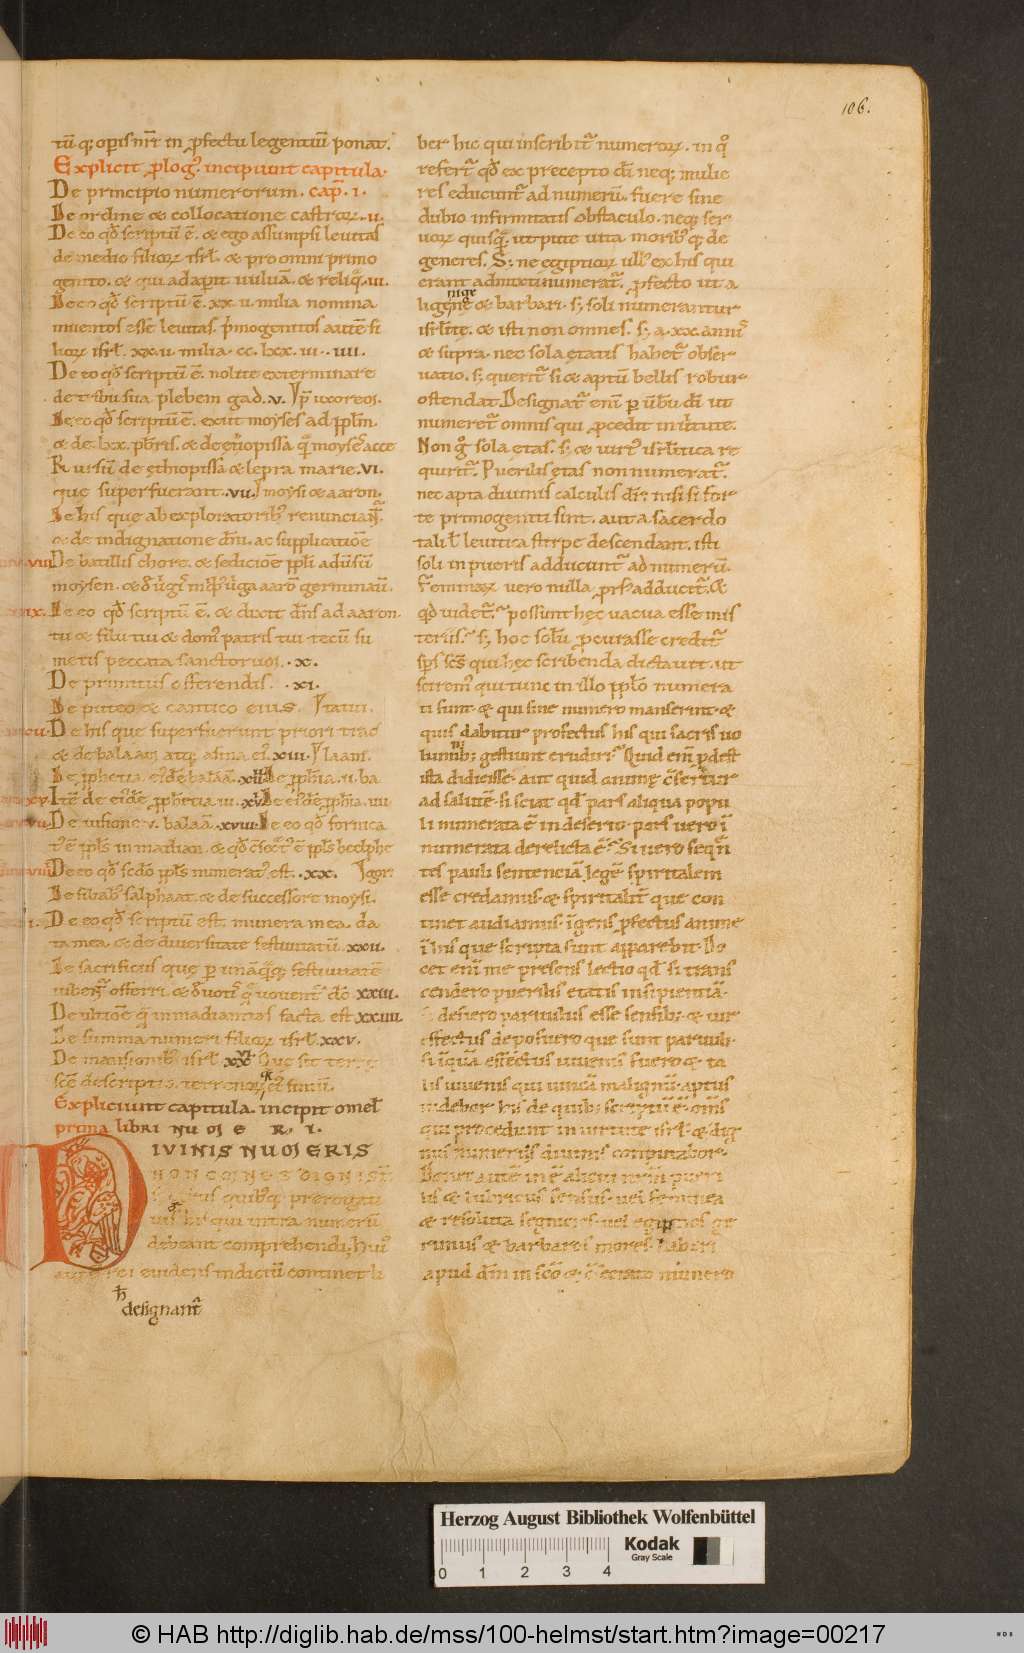 106.
tū q; opis nr̄i in ꝓfectu legentiū ponat.
Explicit ꝓlogꝰ. incipiunt capitula.
De principio numerorum. cap̄. i.
De ordine & collocatione castroꝝ. ii.
De eo qđ scriptū ē. & ego assumpsi leuitas
de medio filioꝝ isrł. & pro omni primo
genito. & qui adaperit uuluā. & reliq̄. iii.
De eo qđ scriptū ē. xx. ii. milia nomina
inuentos esse leuitas. p̄mogenitos autē fi
lioꝝ isrł. xx. ii. milia. cc. lxx. iii. iiii.
De eo qđ scriptū ē. nolite exterminare
de tribu sua plebem gad. v. p̄ uxores.
De eo qđ scriptū ē. exiit moyses ad ppłm.
& de. lxx. pb̄ris. & de ethiopissa quā moyses acce
Rursū de ethiopissa & lepra marie. vi.
que superfuerant. vii. moysi & aaron.
De his que ab exploratoribꝰ renunciant̄.
& de indignatione dn̄i. ac supplicatiōe
De batillis chore. & sediciōe ppłi aduersū
moysen. & aarō germinauit.
De eo qđ scriptū ē. & dixit dn̄s ad aaron.
tu & filii tui & domꝰ patris tui tecū su
metis peccata sanctoruoꝫ. x.
De primitiis offerendis. xi.
De puteo & cantico eius.
De his que superfuerunt priori
& de balaam atq; asina eiꝰ. xiii.
De ꝓphetia
Itē de eiꝰdē ꝓphetia iii. xv.
De uisione v. balaā. xviii. De eo qđ fornica
tꝰ ē ppłs in madian. & qđ ꝯsecrꝰ ē ppłs beelphe
De eo qđ scđo ppłs numeratꝰ est. xx.
De filiabꝰ salphaat. & de successore moysi.
De eo qđ scriptū est. munera mea. da
ta mea. & de diuersitate festiuitatū. xxii.
De sacrificiis que per unāq̄q; festiuitatē
iubent̄ offerri. & xxiii.
De ultiōe q̄ in madianitas facta est xxiiii.
De summa numeri filioꝝ isrł. xxv.
De mansionibꝰ isrł.
scē descriptio.
Expliciunt capitula. incipit omeł
prima libri NUMERI.
DIVINIS NUMERIS
NON OMNES DIGNI
quibꝰdā prerogati
uis his qui intra numerū
debeant comprehendi. huiꝰ
rei euidens indiciū continet li
designant̄
ber hic qui inscribit̄ numeroꝝ. in qº
refert̄ qđ ex precepto dī neq; mulie
res educunt̄ ad numerū. fuere sine
dubio infirmitatis obstaculo. neq; ser
uoꝝ quisq̄. utpute uita moribꝰ q; de
generes. S; ne egiptioꝝ ullꝰ ex his qui
erant admixti numerat̄. ꝓfecto ut a
ligene & barbari. s; soli numerantur
isrłite. & isti non omnes. s; a. xx. annis
& supra. nec sola etatis habet̄ obser
uatio. s; querit̄ si & aptū bellis robur
ostendat. Designat̄ eni per u̅bu dī ut
numeret̄ omnis qui ꝓcedit in uirtute.
Non gº sola etas. s; & uirtꝰ isrłitica re
quirit̄. Puerilis etas non numerat̄.
nec apta diuinis calculis dr̄. nisi si for
te primogeniti sint. aut a sacerdo
tali ł leuitica stirpe descendant. isti
soli in pueris adducunt̄ ad numerū.
Feminaꝝ uero nulla ꝓrsꝰ adducit̄. &
qđ uidet̄. possunt hec uacua esse mis
teriis. s; hoc solū ꝓcurasse credit̄
sp̄s scs̄ qui hec scribenda dictauit. ut
sciremꝰ qui tunc in illo ppło numera
ti sunt. & qui sine numero manserint. &
quis dabitur profectus his qui sacris uo
luminib; gestiunt erudiri. Quid eni ꝓdest
ista didicisse. aut quid anime ꝯfertur
ad salutē. si sciat qđ pars aliqua popu
li numerata ē in deserto. pars uero ī
numerata derelicta ē. Si uero seqm̄
tes pauli sentenciā legē spiritalem
esse credamus. & spiritalit̄ que con
tinet audiamus. ingens ꝓfectus anime
ī his que scripta sunt apparebit. Do
cet eni me presens lectio qđ si trans
cendero puerilis etatis insipientiā.
si desiero paruulus esse sensib; & uir
effectus deposuero que sunt paruuli.
si inquā effectus iuuenis fuero. & ta
lis iuuenis qui uincā malignū. aptus
uidebor his de quib; scriptū ē. om̄s
qui procedunt in uirtute isrł. & dig
nus numeris diuinis computabor.
Donec autē in ē alicui nr̄m pueri
lis & lubricus sensus. uel feminea
& resoluta segnicies. uel egiptios ge
rimus & barbaros mores. haberi
apud dm̄ in scō & ꝯsecrato numero
Herzog August Bibliothek Wolfenbüttel
0 1 2 3 4
Kodak
Gray Scale
© HAB http://diglib.hab.de/mss/100-helmst/start.htm?image=00217